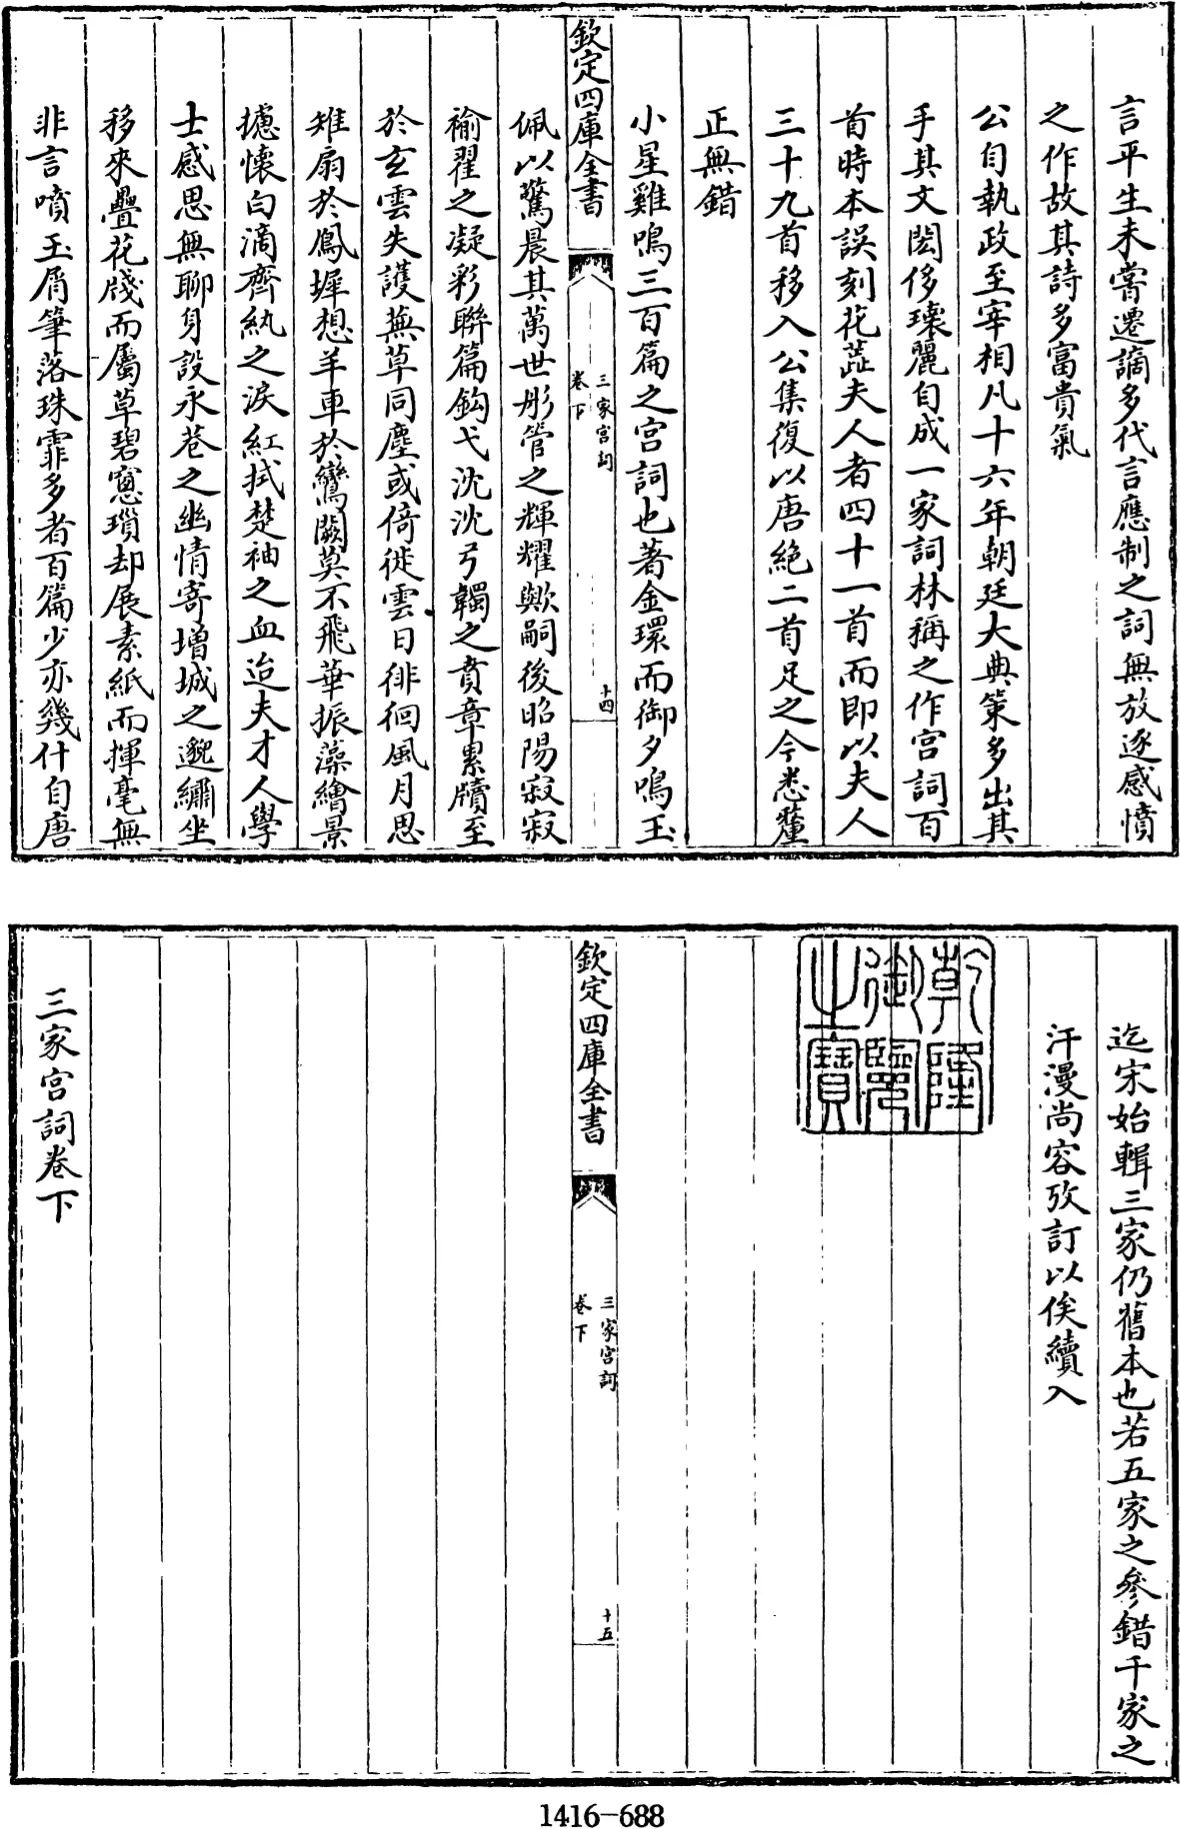 言平生未嘗遷謫多代言應制之詞無放逐感憤
之作故其詩多富貴氣
公自執政至宰相凡十六年朝廷大典策多出其
手其文閎侈瓌麗自成一家詞林稱之作宫詞百
首時本誤刻花蕋夫人者四十一首而即以夫人
三十九首移入公集復以唐絶二首足之今悉釐
正無錯
小星雞鳴三百篇之宫詞也著金環而御夕鳴玉
欽定四庫全書
三家宫詞
卷下
十四
佩以驚晨其萬世彤管之輝耀歟嗣後昭陽寂寂
褕翟之凝彩聯篇鈎弋沈沈弓韣之賁章累牘至
於玄雲失護蕪草同塵或倚徙雲日徘徊風月思
雉扇於鳳墀想羊車於鸞闕莫不飛華振藻繪景
攄懷白滴齊紈之淚紅拭楚袖之血迨夫才人學
士感思無聊身設永巷之幽情寄增城之邈緬坐
移來疊花牋而屬草碧窻瑣却展素紙而揮毫無
非言噴玉屑筆落珠霏多者百篇少亦幾什自唐
迄宋始輯三家仍舊本也若五家之參錯千家之
汗漫尚容攷訂以俟續入
乾隆
御覽
之寶
欽定四庫全書
三家宫詞
卷下
十五
三家宫詞卷下
1416-688